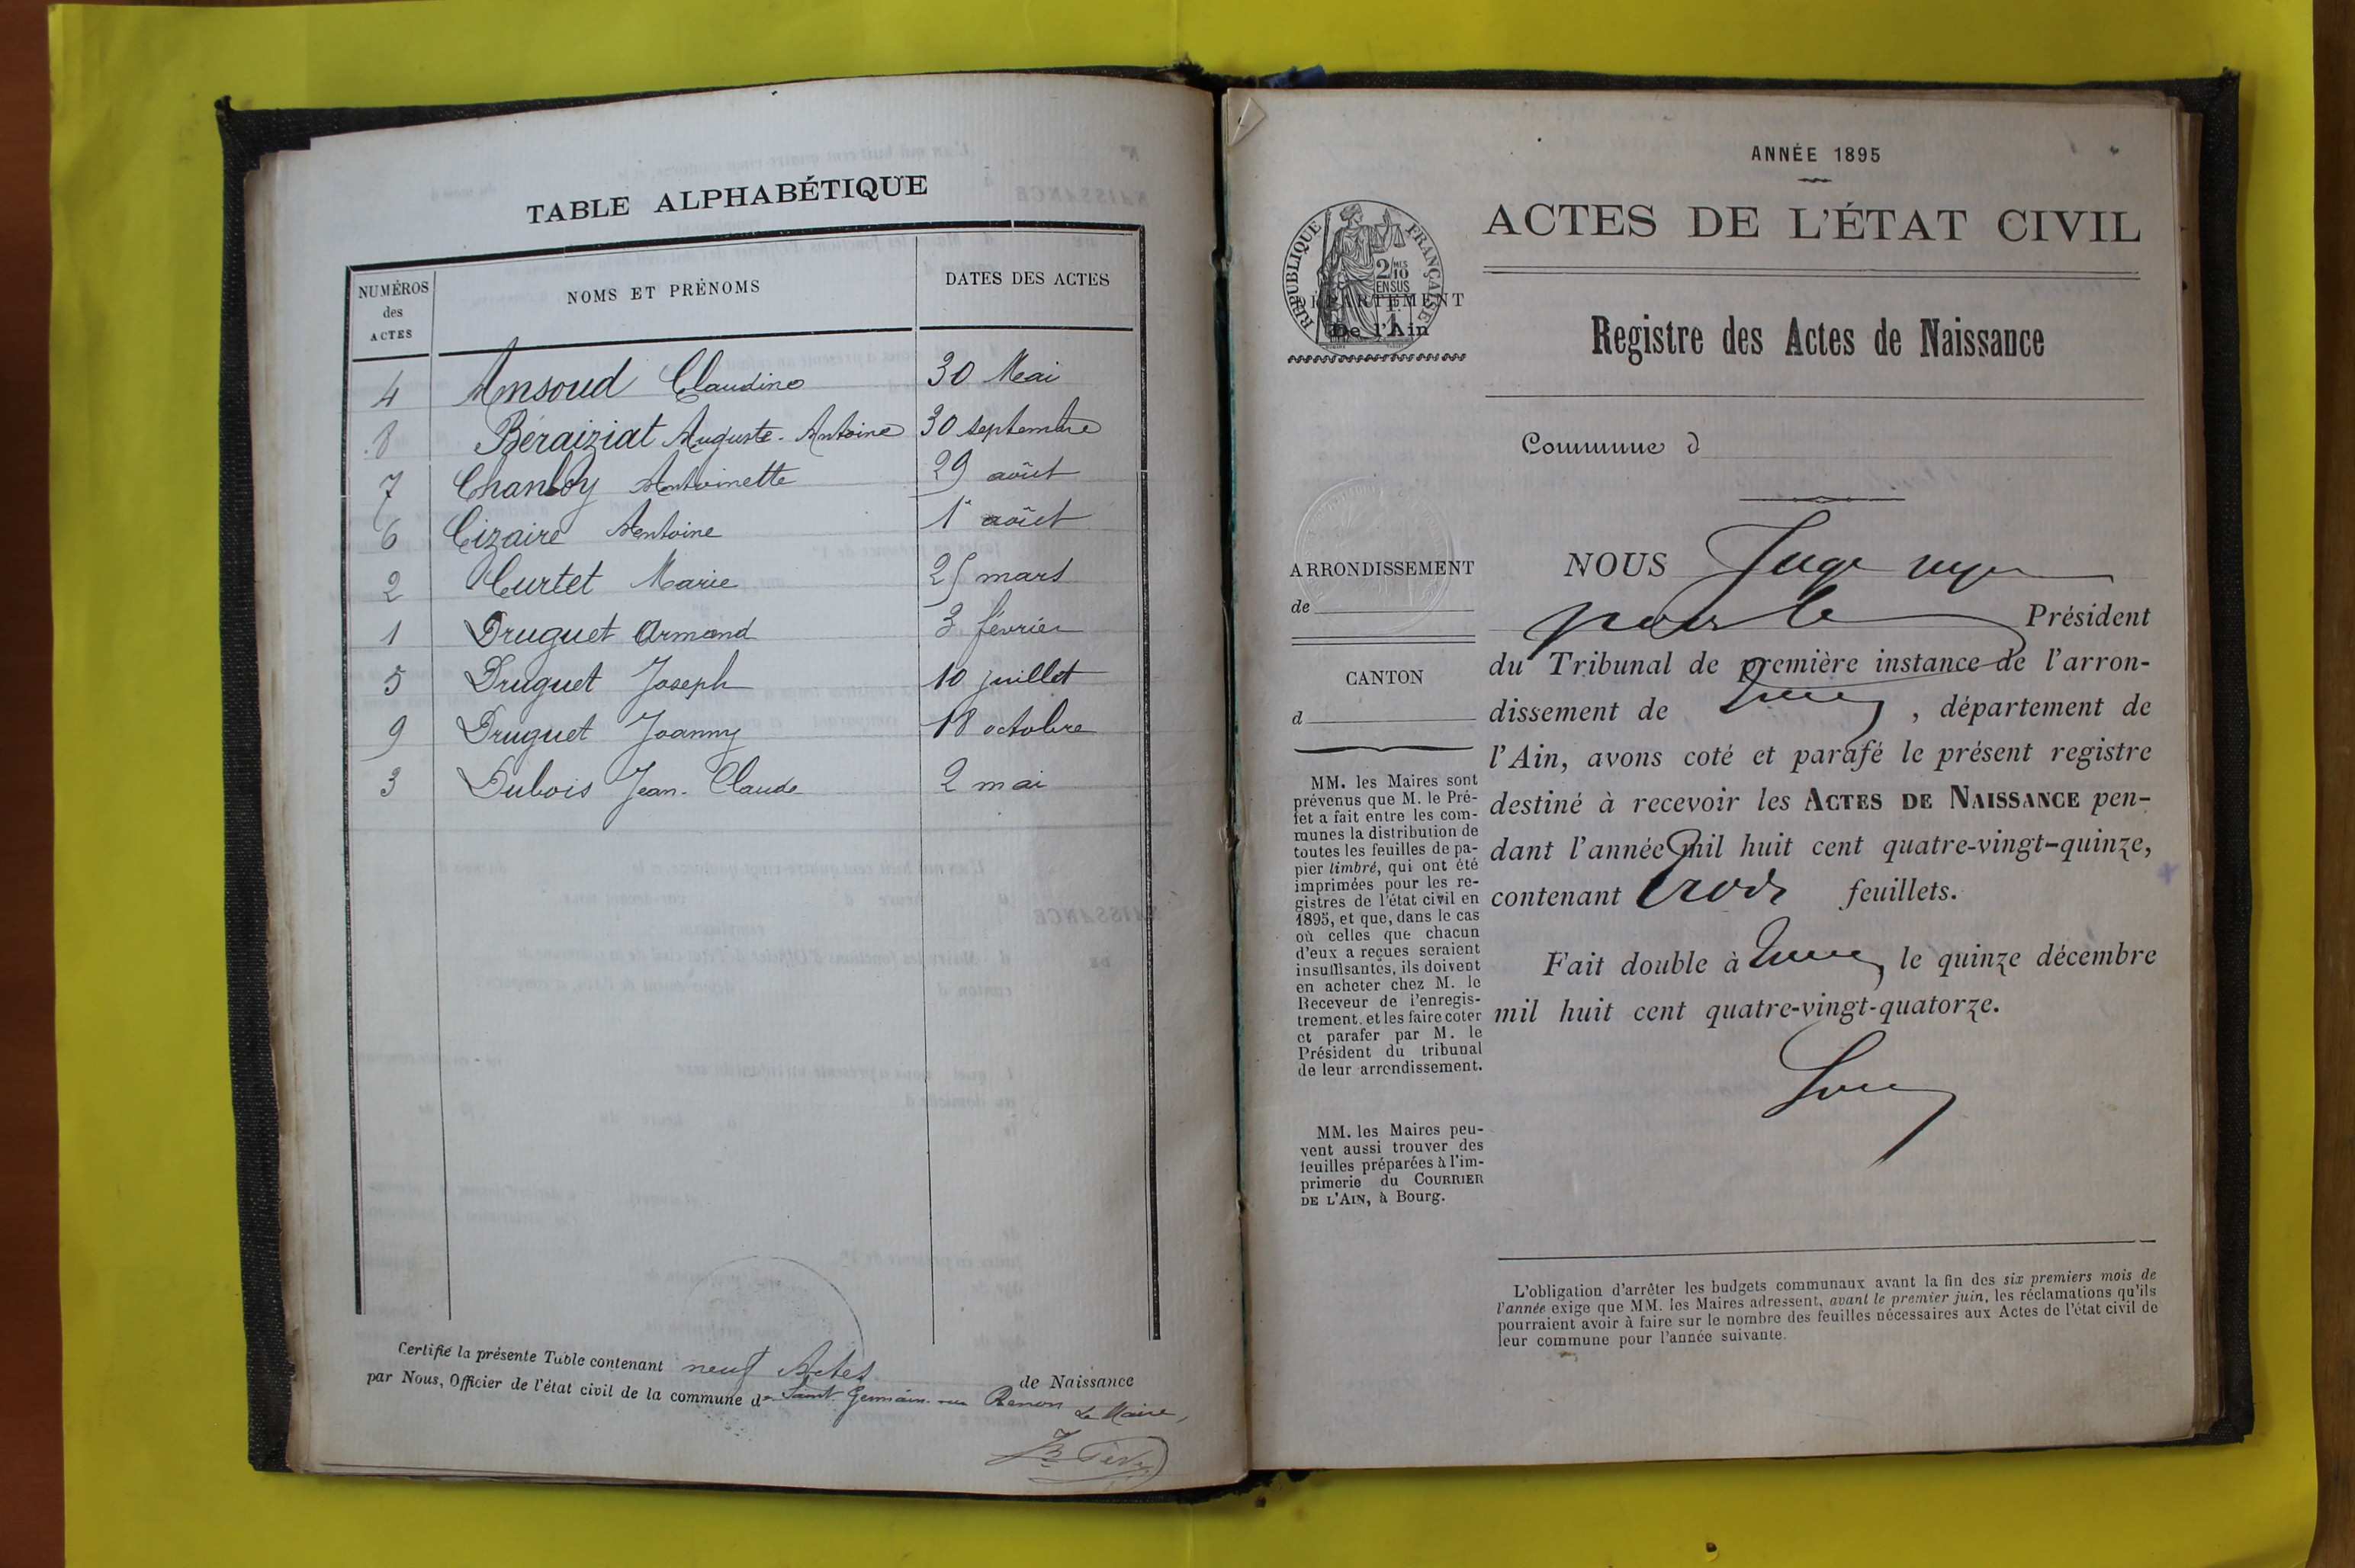 TABLE ALPHABÉTIQUE
NUMÉROS
des
ACTES
NOMS ET PRÉNOMS
DATES DES ACTES
4 Ansoud Claudine 30 Mai
8 Béraiziat Auguste-Antoine 30 septembre
7 Chanloy Antoinette 29 août
6 Cizaire Antoine 1er août
2 Curtet Marie 25 mars
1 Druguet Armand 3 février
5 Druguet Joseph 10 juillet
9 Druguet Joanny 18 octobre
3 Dubois Jean-Claude 2 mai
Certifié la présente Table contenant neuf Actes de Naissance
par Nous, Officier de l'état civil de la commune de Saint Germain sur Renon
Le Maire,
ANNÉE 1895
ACTES DE L'ÉTAT CIVIL
RÉPUBLIQUE FRANÇAISE
2/10 EN SUS
DÉPARTEMENT
De l'Ain
Registre des Actes de Naissance
Commune d
ARRONDISSEMENT
de
CANTON
d
MM. les Maires sont
prévenus que M. le Pré-
fet a fait entre les com-
munes la distribution de
toutes les feuilles de pa-
pier timbré, qui ont été
imprimées pour les re-
gistres de l'état civil en
1895, et que, dans le cas
où celles que chacun
d'eux a reçues seraient
insuffisantes, ils doivent
en acheter chez M. le
Receveur de l'enregis-
trement, et les faire coter
et parafer par M. le
Président du tribunal
de leur arrondissement.
MM. les Maires peu-
vent aussi trouver des
feuilles préparées à l'im-
primerie du COURRIER
DE L'AIN, à Bourg.
NOUS Juge
pour le Président
du Tribunal de première instance de l'arron-
dissement de , département de
l'Ain, avons coté et parafé le présent registre
destiné à recevoir les ACTES DE NAISSANCE pen-
dant l'année mil huit cent quatre-vingt-quinze,
contenant trois feuillets.
Fait double à , le quinze décembre
mil huit cent quatre-vingt-quatorze.
L'obligation d'arrêter les budgets communaux avant la fin des six premiers mois de
l'année exige que MM. les Maires adressent, avant le premier juin, les réclamations qu'ils
pourraient avoir à faire sur le nombre des feuilles nécessaires aux Actes de l'état civil de
leur commune pour l'année suivante.